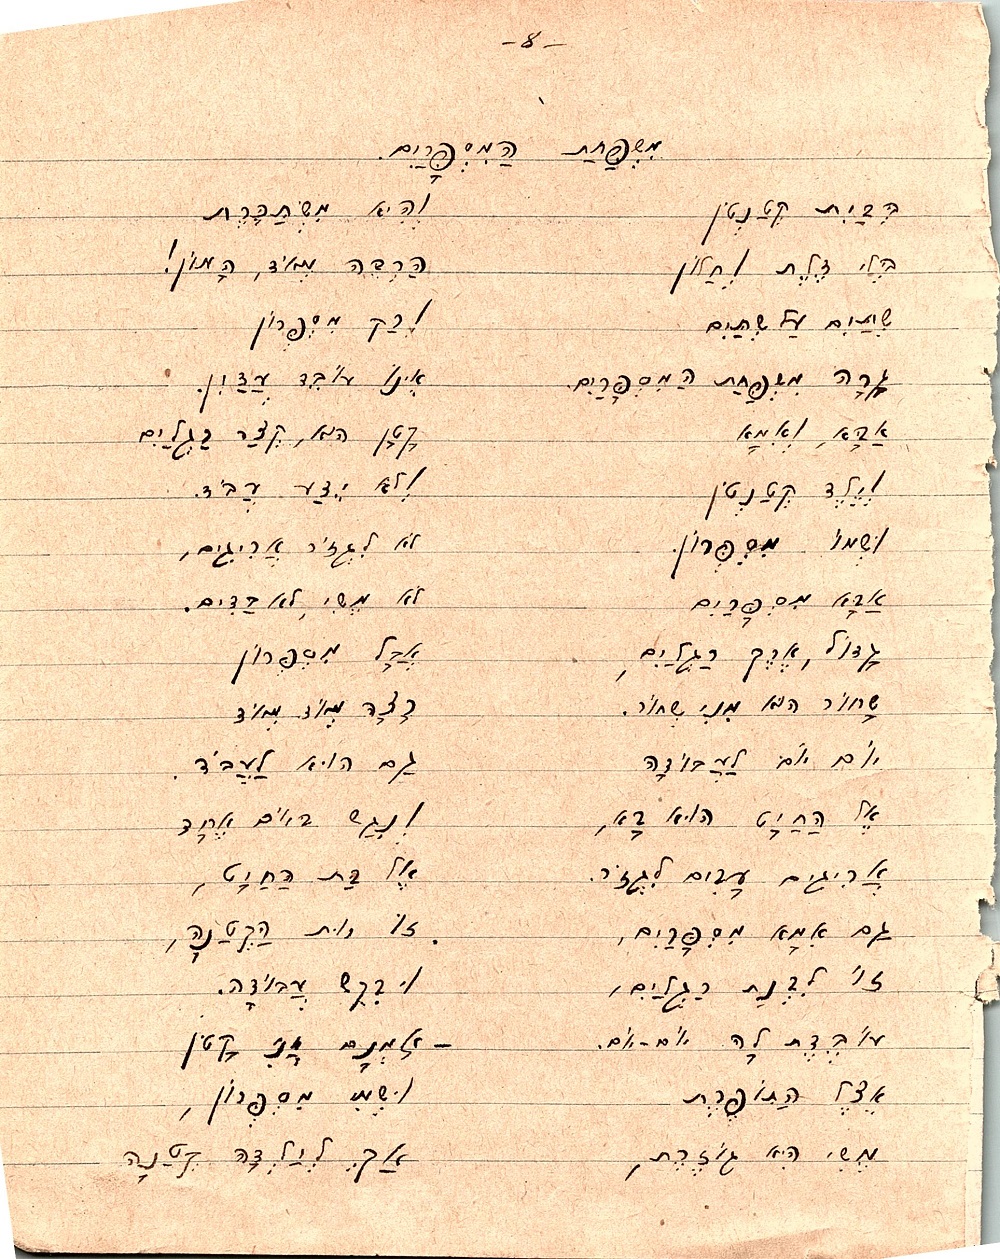 -8-
מִשְׁפַּחַת הַמִּסְפָּרַיִם.
בְּבַיִת קְטַנְטֹן
בְּלִי דֶּלֶת וְחַלּוֹן
שְׁתַּיִם עַל שְׁתַּיִם
גָּרָה מִשְׁפַּחַת הַמִּסְפָּרַיִם.
אַבָּא, וְאִמָּא
וְיֶלֶד קְטַנְטֹן
וּשְׁמוֹ מִסְפְּרוֹן.
אַבָּא מִסְפָּרַיִם
גָּדוֹל, אֶרֶךְ רַגְלַיִם,
שָׁחוֹר הוּא מִנִּי שְׁחוֹר.
יוֹם יוֹם לַעֲבוֹדָה
אֶל הַחַיָּט הוּא בָּא,
אֲרִיגִים עָבִים לִגְזֹר.
גַּם אִמָּא מִסְפָּרַיִם,
זוֹ לִבְנַת רַגְלַיִם,
עוֹבֶדֶת לָהּ יוֹם-יוֹם.
אֵצֶל הַתּוֹפֶרֶת
מֶשִׁי הִיא גּוֹזֶרֶת,
וְהִיא מִשְׂתַּכֶּרֶת
הַרְבֵּה מְאֹד, הָמוֹן!
וְרַק מִסְפְּרוֹן
אֵינוֹ עוֹבֵד עֲדַיִן.
קָטָן הוּא, קְצַר רַגְלַיִם
וְלֹא יֵדַע עֲבֹד.
לֹא לִגְזֹר אֲרִיגִים,
לֹא מֶשִׁי, לֹא בַּדִּים.
אֲבָל מִסְפְּרוֹן
רָצָה מְאֹד מְאֹד
גַּם הוּא לַעֲבֹד.
וְנִגַּשׁ בְּיוֹם אֶחָד
אֶל בַּת הַחַיָּט,
זוֹ רוּת הַקְּטַנָּה,
וּבִקֵּשׁ עֲבוֹדָה.
- אָמְנָם אֲנִי קָטֹן
וּשְׁמִי מִסְפְּרוֹן,
אַךְ לְיַלְדָּה קְטַנָּה